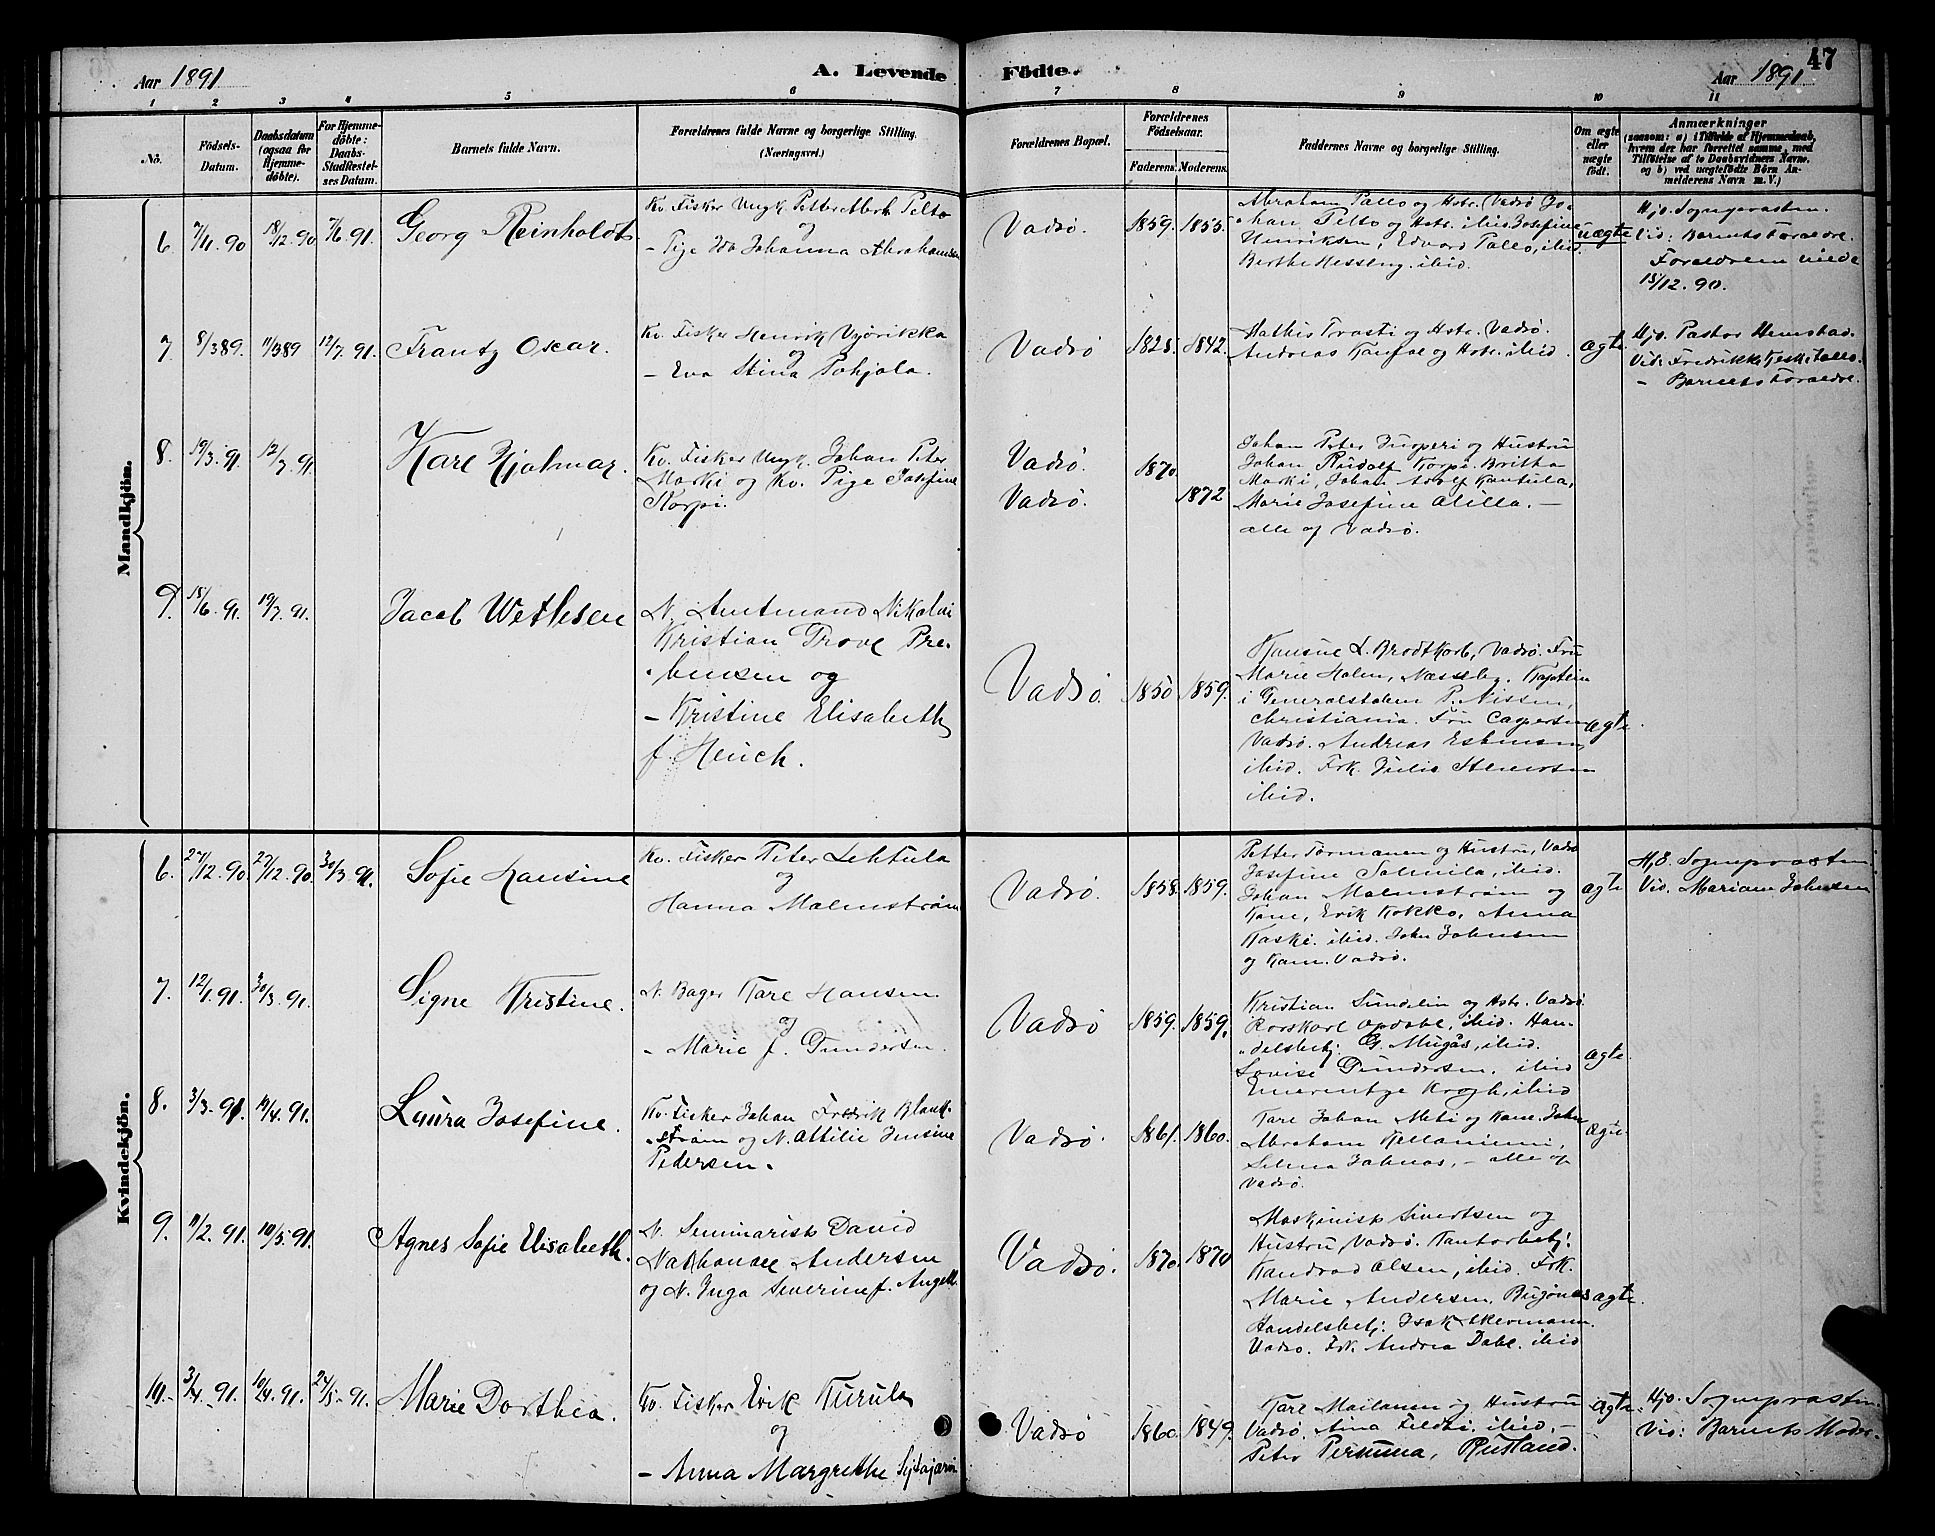 Aar 1891
A. Levende
Födte.
Aar 1891
47
1 2 3 4 5 6 7 8 9 10 11
No.
Födsels-
Datum.
Daabsdatum
(ogsaa for
Hjemme-
döbte).
For Hjemme-
döbte:
Daabs-
Stadfæstel-
ses Datum.
Barnets fulde Navn.
Forældrenes fulde Navne og borgerlige Stilling.
(Næringsvei.)
Forældrenes Bopæl.
Forældrenes
Födselsaar.
Faderens. Moderens.
Faddernes Navne og borgerlige Stilling.
Om ægte
eller
uægte
født.
Anmærkninger
(saasom: a) i Tilfælde af Hjemmedaab,
hvem der har forrettet samme, med
Tilföielse af to Daabsvidners Navne,
og b) ved uægtefødte Börn An-
melderens Navn m. V.)
Mandkjön.
6. 7/11 90 18/12 90 7/6 91. Georg Reinholdt
Kv. Fisker Ungk. Petter Pelto
og
- Pige Ida Johanna Abrahamsen
Vadsö. 1859. 1855.
Abraham Pallo og Hstr. Vadsö Jo-
han Pelto og Hstr. ibid Josefine
Henriksen, Edvard Pallo, ibid.
Berthe Messeng. ibid.
uægte
Hjd. Sogneprasten.
Vid: Barnets Foraldre.
Foraldrene
15/12.90.
7. 8/3 89. 11/3 89 12/7. 91. Frantz Oscar.
Kv. Fisker Henrik
og
- Eva Stina Pohjola.
Vadsö 1828. 1842.
Mathis Trasti og Hstr. Vadsö.
Andreas og Hstr. ibid.
ægte
Hjd. Pastor
Vid: Fredrikke
- Barnets Foraldre.
8. 19/3. 91. 12/7 91. Karl Hjalmar.
Kv. Fisker Ungk. Johan Peter
Marki og Kv. Pige Josefine
Korpi.
Vadsö.
Vadsö.
1870.
1872
Johan Peter og Hustru
Johan Rudolf Korpi. Britha
Marki, Johan Adolf Kantula,
Marie Josefine Alilla. -
alle af Vadsö.
9. 18/6. 91. 19/7. 91. Jacob Wethlesen
N. Amtmand Nikolai
Kristian Grove Pre-
-bensen og
- Kristine Elisabeth
f. Heuch.
Vadsö. 1850 1859.
Konsul L. Brodtkorb, Vadsö. Fru
Marie Holm, Næsseby. Kaptein
i Generalstaben P. Nissen,
Christiania. Fru Caspersen
Vadsö. Andreas Esbensen,
ibid. Frk. Julie
ibid.
ægte
Kvindekjön.
6. 27/12. 90. 27/12. 90. 30/3. 91. Sofie Hansine
Kv. Fisker Peter Lehtula
og
Hanna Malmström
Vadsö. 1858. 1859.
Petter Tormanen og Hustru, Vadsö
Josefine ibid.
Johan Malmström og
Kone, Erik Kokko, Anna
Kaski. ibid. John Johnsen
og Kone. Vadsö.
ægte
Hjd. Sogneprasten
Vid. Mariane Johnsen
7. 12/1. 91. 30/3. 91. Signe Kristine.
N. Bager Karl Hansen
og
- Marie f. Gundersen.
Vadsö 1859. 1859.
Kristian Sundelin og Hstr. Vadsö
Rorskarl Opdahl, ibid. Han-
-delsbetj. G. Mugås, ibid.
Lovise Gundersen. ibid
Emerentze Krogh, ibid
ægte.
8. 3/3. 91. 19/4. 91. Laura Josefine.
Kv. Fisker Johan Fredrik Blank-
-ström og N. Attilie Jensine
Pedersen.
Vadsö. 1861. 1860.
Karl Johan Meti og Kone. John
Abraham Kellaniemi,
Selma Johnas, - alle af
Vadsö.
ægte
9. 11/2. 91. 10/5. 91. Agnes Sofie Elisabeth.
N. Seminarist David
Nathanael Andersen
og N. Inga Severine f. Angell.
Vadsö. 1870. 1870
Maskinist Sivertsen og
Hustru, Vadsö. Kontorbetj.
Kondrad Olsen, ibid. Frk.
Marie Andersen, Bugönes
Handelsbetj: Isak Akermann.
Vadsö. Frk. Andrea Dahl. ibid
ægte.
10. 3/4. 91. 10/4. 91. 24/5. 91. Marie Dorthea.
Kv. Fisker Erik Kurula
og
- Anna Margrethe
Vadsö 1860. 1849.
Karl Mailanen og Hustru
Vadsö. Aina ibid. -
Peter Rusland.
ægte.
Hjd. Sogneprasten.
Vid: Barnets Moder.